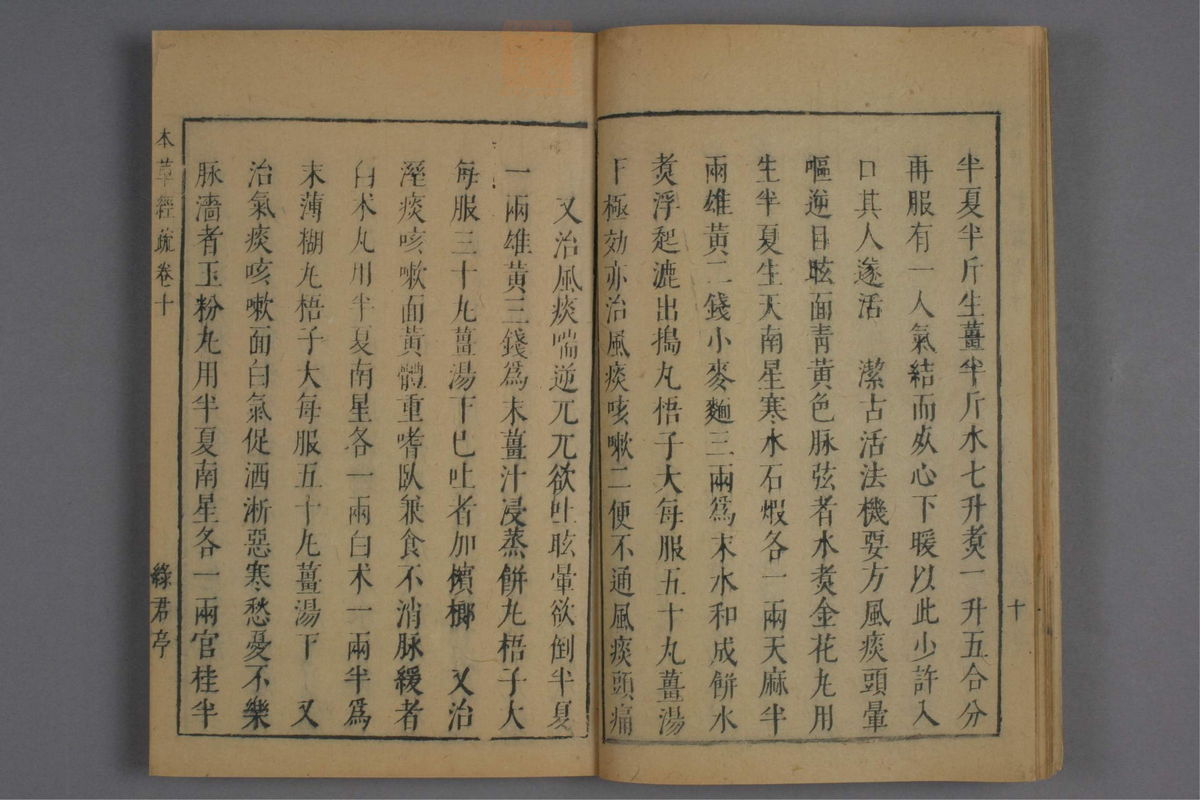 十
半夏半斤生薑半斤水七升煑一升五合分
再服有一人氣結而死心下暖以此少許入
口其人遂活　潔古活法機要方風痰頭暈
嘔逆目眩面靑黃色脉弦者水煑金花丸用
生半夏生天南星寒水石煆各一兩天麻半
兩雄黃二錢小麥麵三兩爲末水和成餅水
煑浮起漉出搗丸梧子大每服五十丸薑湯
下極効亦治風痰咳嗽二便不通風痰頭痛
又治風痰喘逆兀兀欲吐眩暈欲倒半夏
一兩雄黃三錢爲末薑汁浸蒸餅丸梧子大
每服三十丸薑湯下已吐者加檳榔　又治
溼痰咳嗽面黃體重嗜臥兼食不消脉緩者
白术丸用半夏南星各一兩白术一兩半爲
末薄糊丸梧子大每服五十丸薑湯下　又
治氣痰咳嗽面白氣促洒淅惡寒愁憂不樂
脉濇者玉粉丸用半夏南星各一兩官桂半
本草經疏卷十
綠君亭